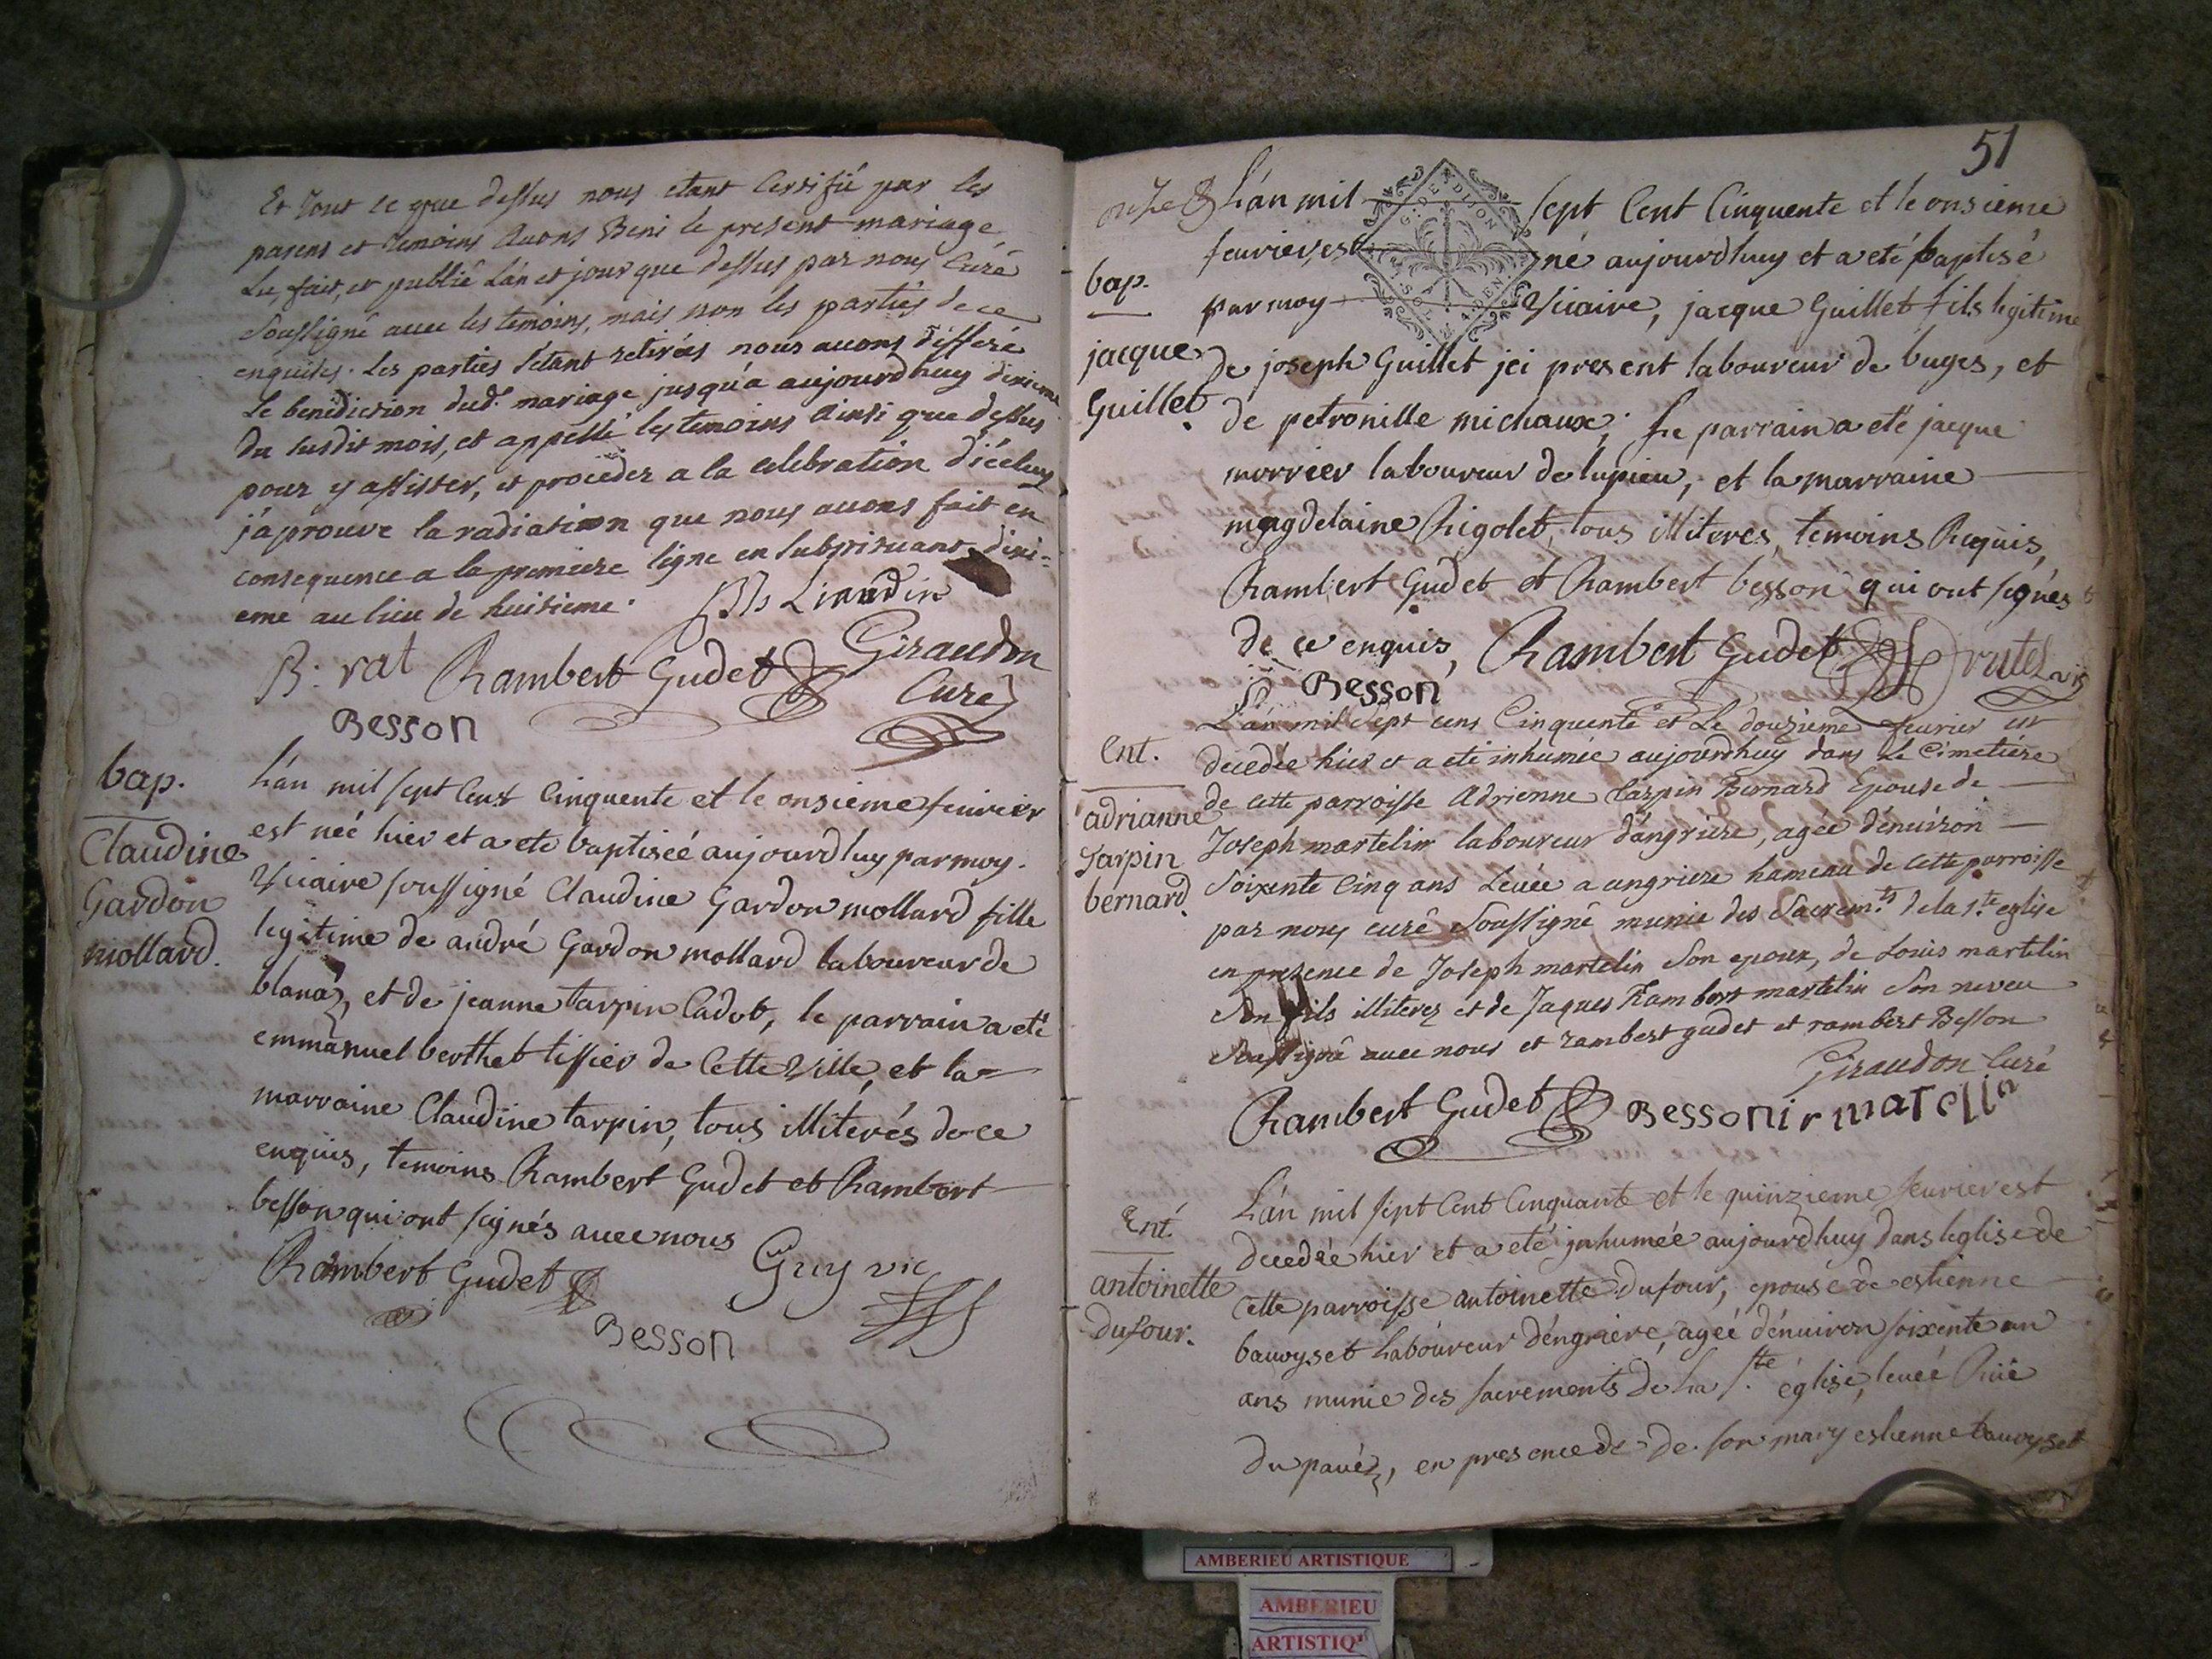 Et Tout ce que dessus nous etant Certifié par les
parens et temoins Auons Beni le present mariage
Lu, fait, et publié L'án et jour que dessus par nous Curé
Soussigné auec les temoins, mais non les parties de ce
enquises. Les parties s'étant retirées nous auons différé
Le benediction dud. mariage jusqu'a aujourdhuy dixieme
du susdit mois, et appellé les temoins Ainsi que dessus
pour y assister, et proceder a la celebration d'iceluy
j'aprouve la radiation que nous auons fait en
consequence a la premiere ligne en substituant dixi-
eme au lieu de huitieme.
Liaudin
B. rat Rambert Gudet Giraudon
Besson Curé
bap.
Claudine
Gardon
mollard.
L'án mil sept Cent Cinquente et le onsieme feuvrier
est neé hier et a eté baptiseé aujourdhuy par moy.
Viciaire soussigné Claudine Gardon mollard fille
legitime de andré Gardon mollard laboureur de
blanaz, et de jeanne tarpin Cadot, le parrain a eté
emmanuel berthet tissier de Cette Ville, et la
marraine Claudine tarpin, tous illiterés de ce
enquis, temoins Rambert Gudet et Rambert
besson qui ont signés auec nous
Rambert Gudet Guy vic
Besson
51
L'án mil sept Cent Cinquente et le onsieme
feurier, est né aujourdhuy et a eté baptisé
par moy Viciaire, jacque Guillet fils legitime
bap.
jacque
Guillet.
de joseph Guillet jci present laboureur de buges, et
de petronille michaux; Le parrain a eté jacque
morrier laboureur de lupieu, et la marraine
magdelaine Rigolet, tous illiteres, temoins Requis,
Rambert Gudet et Rambert besson qui ont signés
de ce enquis, Rambert Gudet
Besson
Ent.
adrianne
Tarpin
bernard.
L'án mil sept cens Cinquente et Le douzieme feurier est
decedée hier et a eté inhumée aujourdhuy dans Le Cimetiére
de cette parroisse Adrienne Tarpin Bernard Epouse de
Joseph martelin laboureur d'angriere, agée d'enuiron
Soixente Cinq ans Leuée a angriere hameau de cette parroisse
par nous curé Soussigné munie des Sacrem.ts de la s.te eglise
en presence de Joseph martelin Son epoux, de Louis martelin
Son fils illiterez et de Jaques Rambert martelin Son neveu
Soussigné auec nous et rambert gudet et rambert Besson
Giraudon Curé
Rambert Gudet Besson
Ent.
antoinette
dufour.
L'án mil sept Cent Cinquante et le quinzieme feurier est
decedée hier et a eté jnhumée aujourdhuy dans leglise de
Cette parroisse antoinette dufour, epouse de estienne
bauoyset Laboureur d'engriere, ageé d'enuiron soixente un
ans munie des sacrements de La s.te église, leueé Ruë
Du pauéz, en presence de de son mary estienne bauoyset
AMBERIEU ARTISTIQUE
AMBERIEU
ARTISTIQ